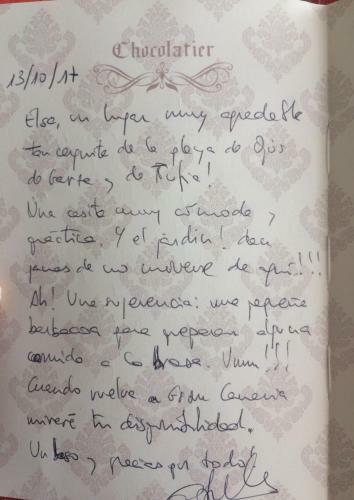 Chocolatier
13/10/17
Elsa, un lugar muy agradable
tan cerquita de la playa de Ojos
de Garza y de Tufia!
Una casita muy cómoda y
práctica. Y el jardín! dan
ganas de no moverse de aquí!!!
Ah! Una sugerencia: una pequeña
barbacoa para preparar alguna
comida a la brasa. Umm!!!
Cuando vuelva a Gran Canaria
miraré tu disponibilidad.
Un beso y gracias por todo!